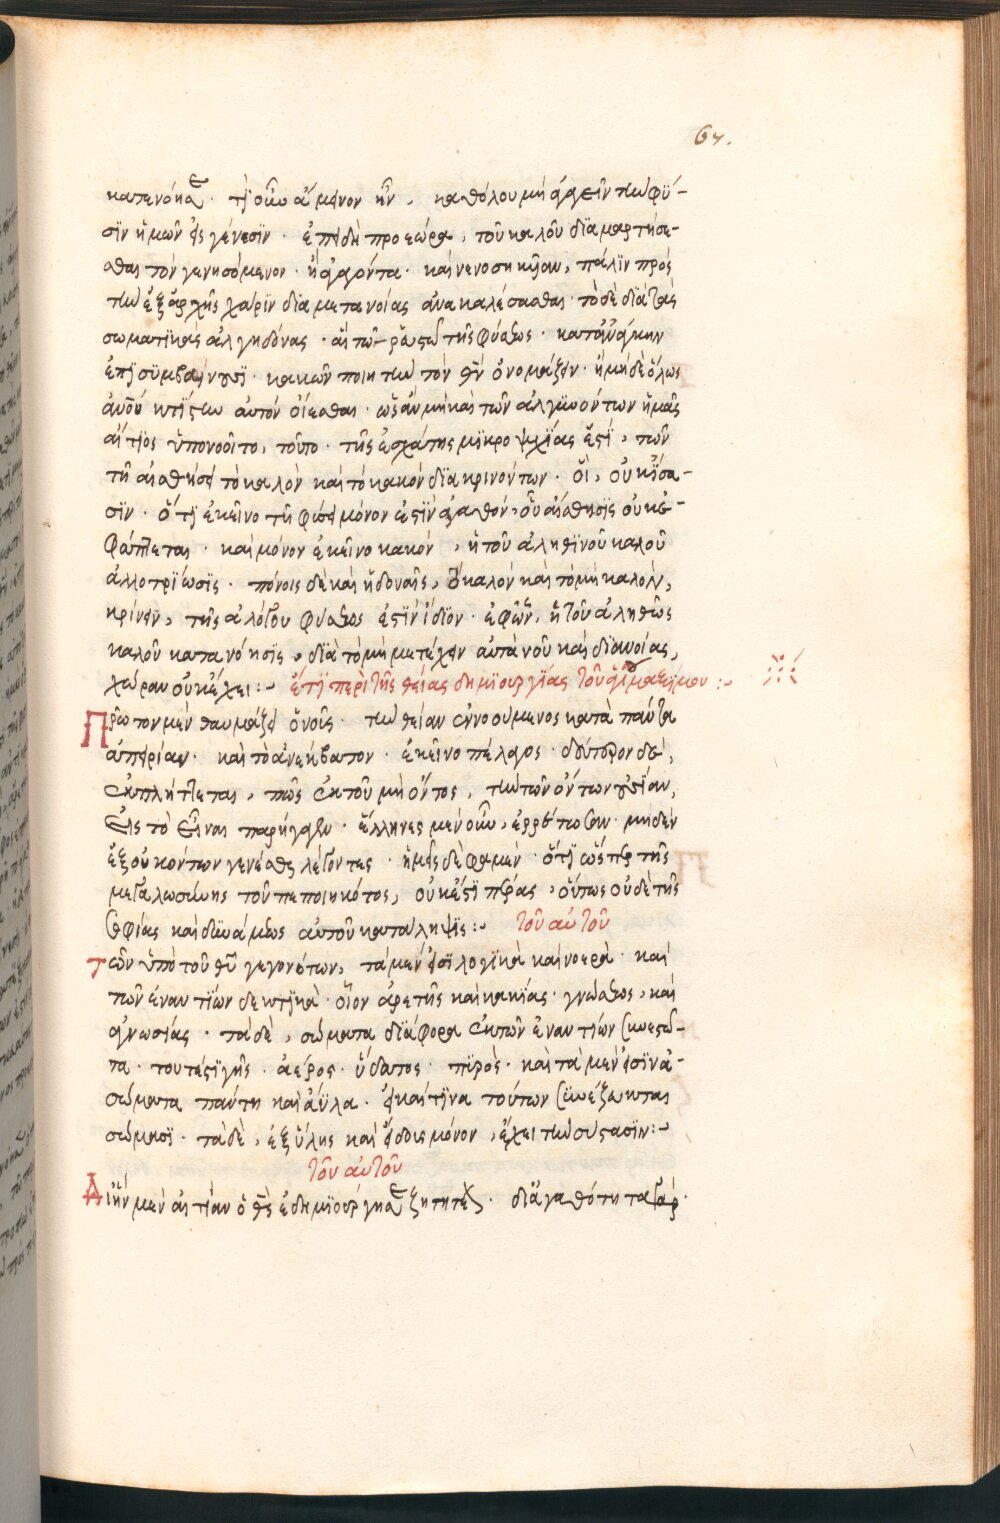 67.
κατενόησε· τί οὖν ἄμεινον ἦν, καθόλου μὴ ἀγαγεῖν τὴν φύ-
σιν ἡμῶν εἰς γένεσιν· ἐπειδὴ προεώρα, τοῦ καλοῦ διαμαρτήσε-
σθαι τὸν γενησόμενον· ἢ ἀγαγόντα· καὶ νενοσηκυῖαν, πάλιν πρὸς
τὴν ἐξαρχῆς χάριν διὰ μετανοίας ἀνακαλέσασθαι· τὸ δὲ διὰ τὰς
σωματικὰς ἀλγηδόνας· αἳ τῶ ῥευστῶ τῆς φύσεως· κατ' ἀνάγκην
ἐπισυμβαίνουσι· κακῶν ποιητὴν τὸν θν ὀνομάζειν· ἢ μὴ δὲ ὅλως
ἀνοῦ κτίστην αὐτὸν οἴεσθαι· ὡς ἂν μὴ καὶ τῶν ἀλγυνόντων ἡμᾶς
αἴτιος ὑπονοοῖτο, τοῦτο· τῆς ἐσχάτης μικροψυχίας ἐστί, τῶν
τῆ αἰσθήσει τὸ καλὸν καὶ τὸ κακὸν διακρινόντων· οἳ, οὐκ ἴσα-
σιν· ὅτι ἐκεῖνο τῆ φύσει μόνον ἐστὶν ἀγαθόν, οὗ αἴσθησις οὐκ ἐ-
φάπτεται· καὶ μόνον ἐκεῖνο κακόν, ἡ τοῦ ἀληθινοῦ καλοῦ
ἀλλοτρίωσις· πόνοις δὲ καὶ ἡδοναῖς, τὸ καλὸν καὶ τὸ μὴ καλὸν,
κρίνειν, τῆς ἀλόγου φύσεως ἐστὶν ἴδιον· ἐφῶν, ἡ τοῦ ἀληθῶς
καλοῦ κατανόησις, διὰ τὸ μὴ μετέχειν αὐτὰ νοῦ καὶ διανοίας,
χώραν οὐκ ἔχει:- ἔτι περὶ τῆς θείας δημιουργίας τοῦ ἁγίου μαξίμου:-
Πρῶτον μὲν θαυμάζει ὁ νοῦς· τὴν θείαν ἐννοούμενος κατὰ πάντα
ἀπειρίαν· καὶ τὸ ἀνέκβατον· ἐκεῖνο πέλαγος· δεύτερον δὲ,
ἐκπλήττεται, πῶς ἐκ τοῦ μὴ ὄντος, τὴν τῶν ὄντων οὐσίαν,
εἰς τὸ εἶναι παρήγαγεν· ἕλληνες μὲν οὖν, ἐρρέτωσαν· μηδὲν
ἐξ οὐκ όντων γενέσθαι λέγοντες· ἡμεῖς δὲ φαμὲν· ὅτι ὥσπερ τῆς
μεγαλωσύνης τοῦ πεποιηκότος, οὐκ ἔστι πέρας, οὕτως οὐδὲ τῆς
σοφίας καὶ δυνάμεως αὐτοῦ κατάληψις:- τοῦ αὐτοῦ
τῶν ὑπὸ τοῦ θυ γεγονότων, τὰ μὲν εἰσὶ λογικὰ καὶ νοερὰ· καὶ
τῶν ἐναντίων δεκτικὰ· οἷον ἀρετῆς καὶ κακίας· γνώσεως, καὶ
ἀγνωσίας· τὰ δὲ, σώματα διάφορα ἐκ τῶν ἐναντίων συνεστῶ-
τα· τουτέστι γῆς· ἀέρος· ὕδατος· πυρὸς· καὶ τὰ μὲν εἰσὶν ἀ-
σώματα πάντη καὶ ἄϋλα· εἰ καί τινα τούτων συνέζευκται
σώμασι· τὰ δὲ, ἐξ ὕλης καὶ εἴδους μόνον, ἔχει τὴν σύστασιν:-
τοῦ αὐτοῦ
Δι' ἣν μὲν αἰτίαν ὁ θς ἐδημιούργησε ζητητέον· διὰ γαθότητα γὰρ·